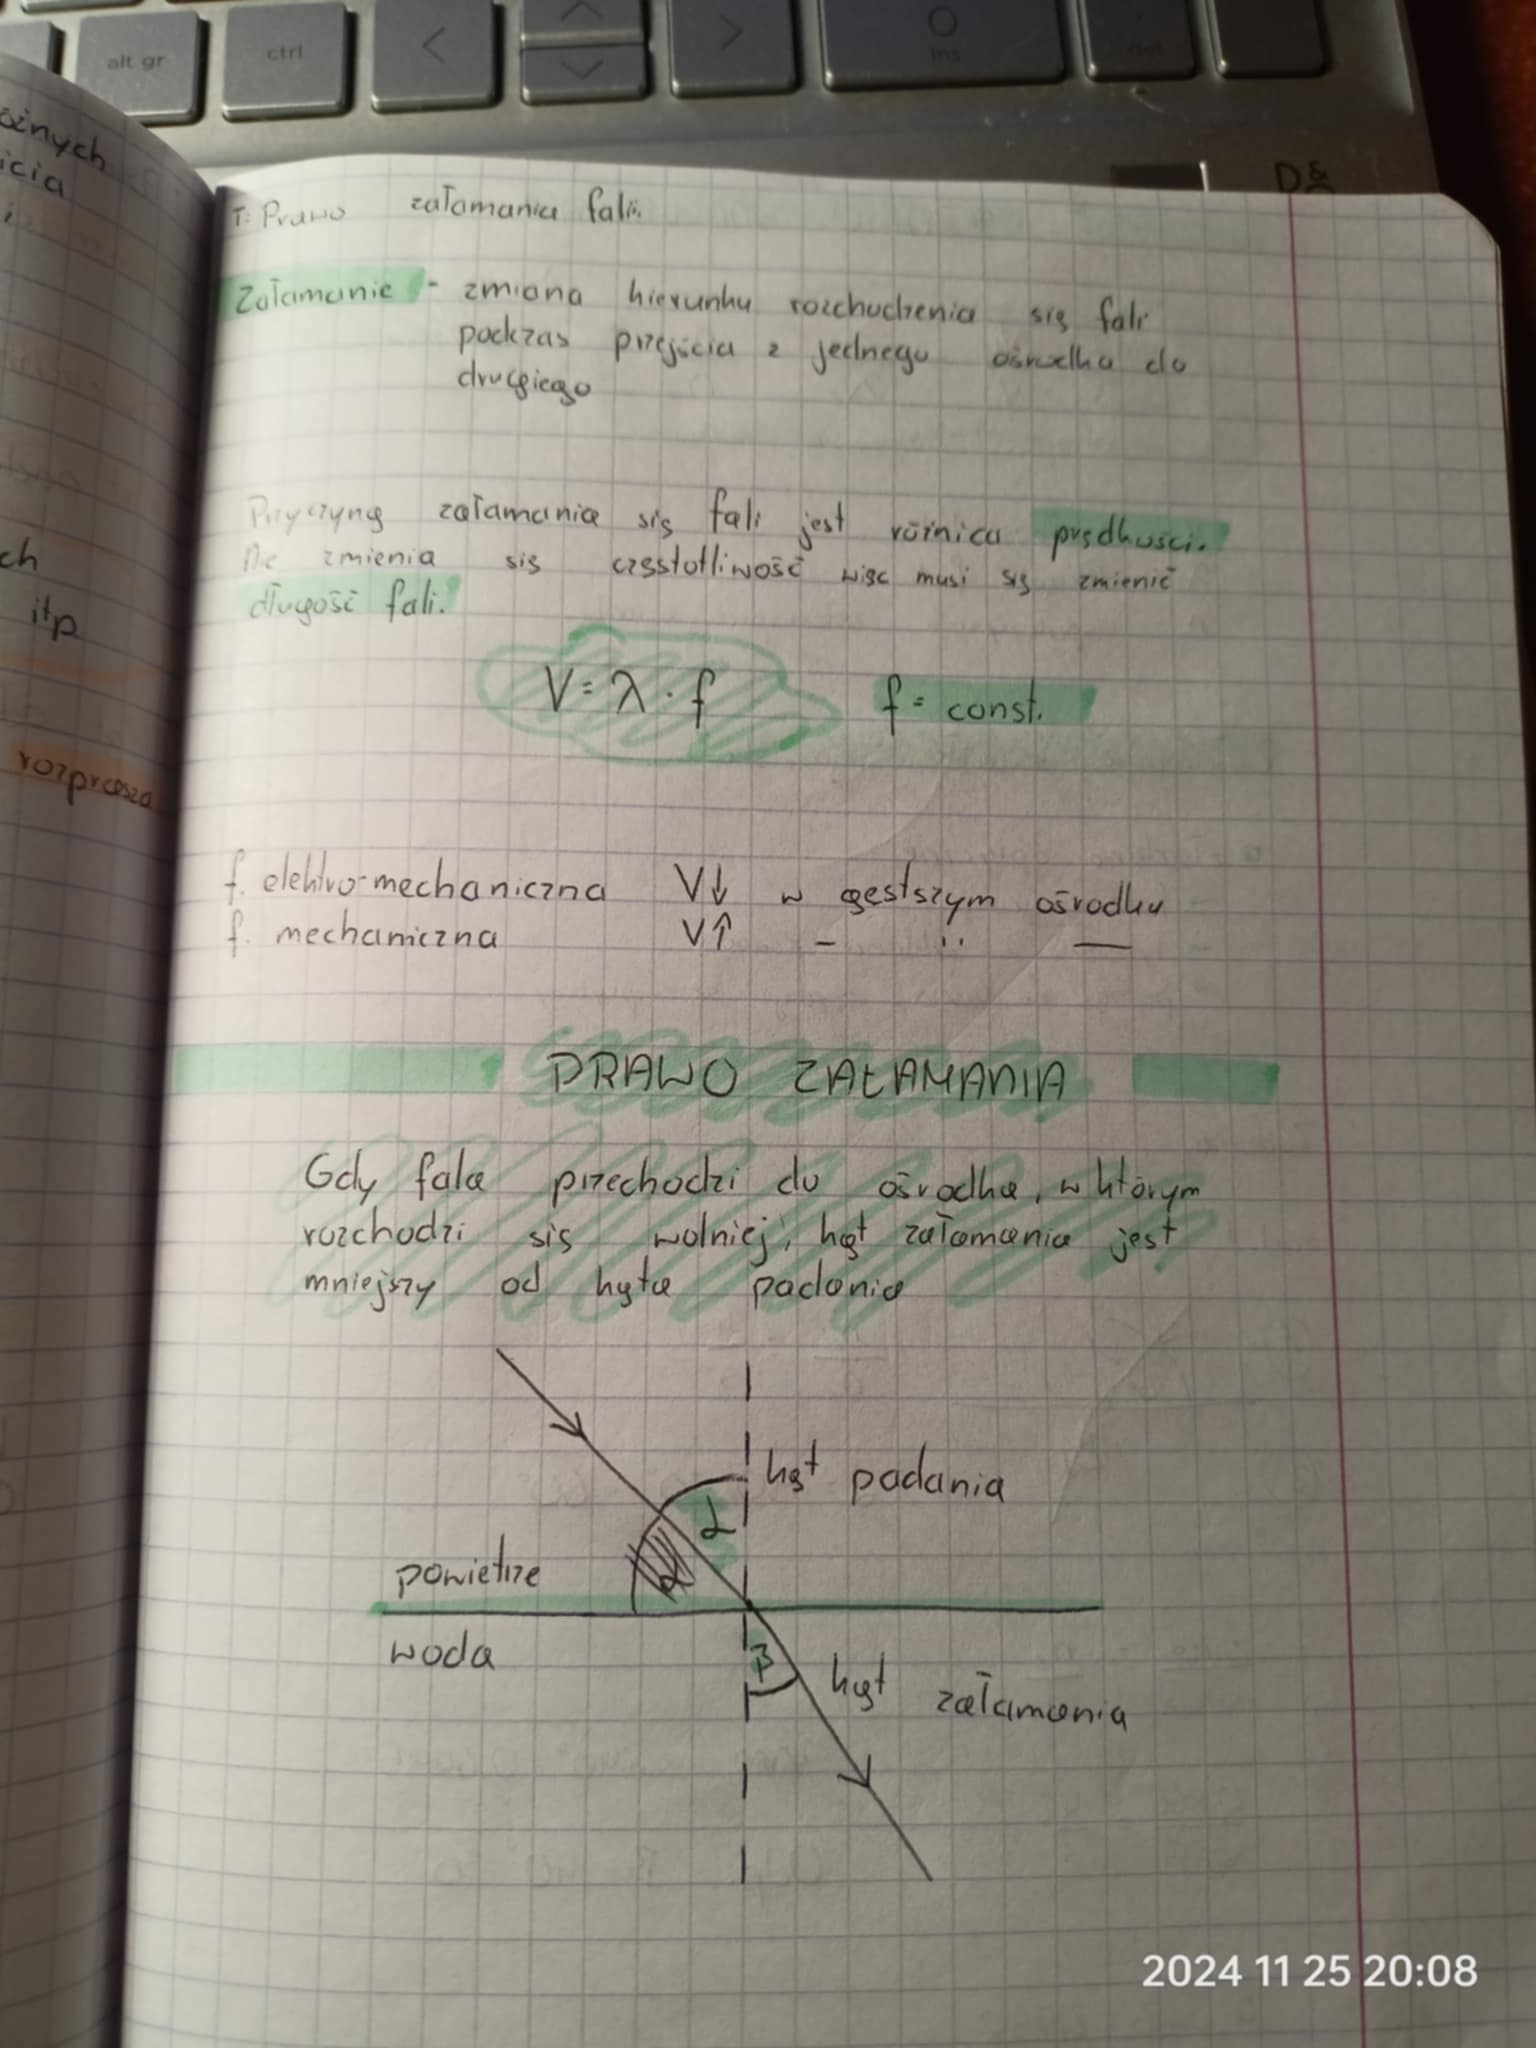 alt gr
ctrl
<
>
ins
del
ożnych
icia
i
ch
itp
rozprasza
T: Prawo załamania fali.
Załamanie - zmiana kierunku rozchodzenia się fali
podczas przejścia z jednego ośrodka do
drugiego
Przyczyną załamania się fali jest różnica prędkości.
Nie zmienia się częstotliwość więc musi się zmienić
długość fali.
V = λ · f f = const.
f. elektro-mechaniczna V↓ w gęstszym ośrodku
f. mechaniczna V↑ – '' —
PRAWO ZAŁAMANIA
Gdy fala przechodzi do ośrodka, w którym
rozchodzi się wolniej, kąt załamania jest
mniejszy od kąta padania
kąt padania
α
powietrze
woda
β
kąt załamania
2024 11 25 20:08